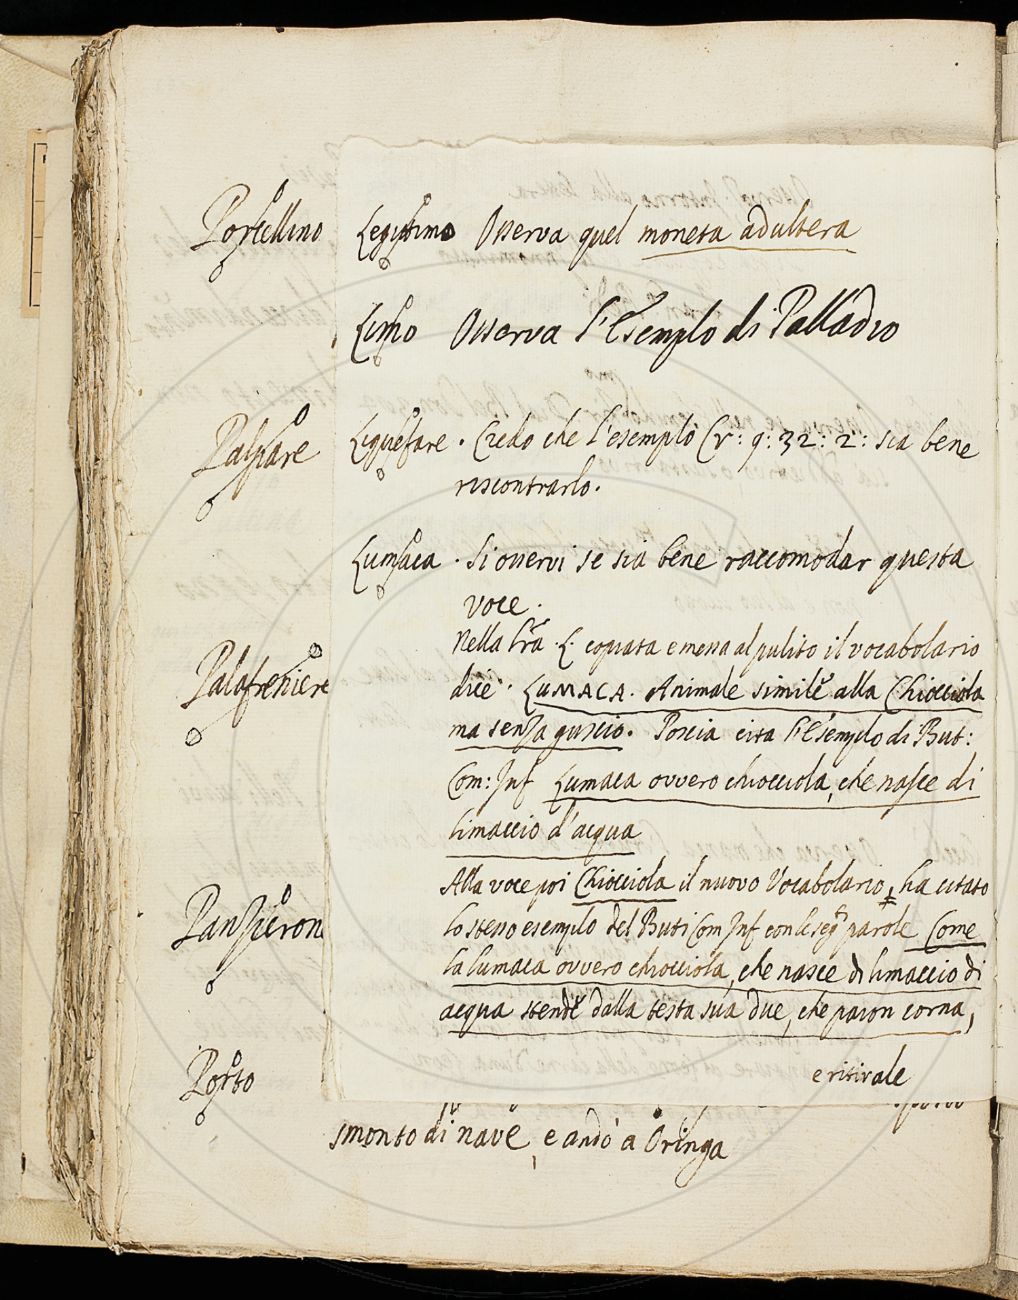 Porcellino
Legittimo Osserva quel moneta adultera
Limo Osserva l'Esemplo di Palladio
Palpare
Liquefare. Credo che l'esemplo Cr: 9: 32: 2: sia bene
riscontrarlo.
Lumaca. Si osservi se sia bene raccomodar questa
voce.
Palafreniere
Nella Lra L copiata e messa al pulito il vocabolario
dice. LUMACA. Animale simile alla Chiocciola
ma senza guscio. Poscia cita l'Esemplo di But:
Com: Inf Lumaca ovvero chiocciola, che nasce di
limaccio d'acqua
Alla voce poi Chiocciola il nuovo Vocabolario, ha citato
Panzerone
lo stesso esemplo del Buti Com Inf con le segti parole Come
la lumaca ovvero chiocciola, che nasce di limaccio di
acqua stende dalla testa sua due, che paion corna,
e ritirale
Porto
smontò di nave, e andò à Oringa